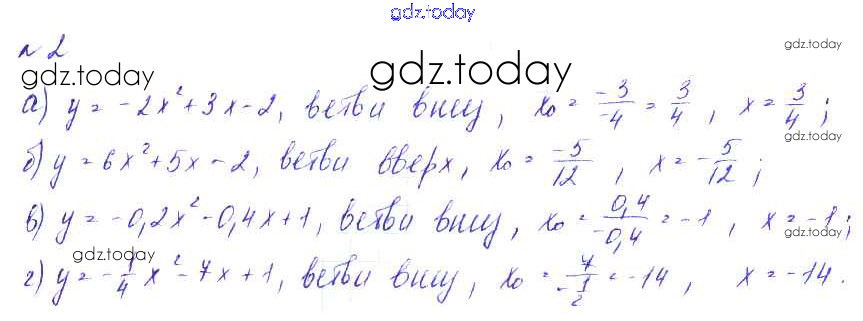 gdz.today
№ 2
gdz.today
gdz.today
gdz.today
а) y = -2x² + 3x - 2, ветви вниз, x₀ = -3/-4 = 3/4, x = 3/4;
gdz.today
б) y = 6x² + 5x - 2, ветви вверх, x₀ = -5/12, x = -5/12;
в) y = -0,2x² - 0,4x + 1, ветви вниз, x₀ = 0,4/-0,4 = -1, x = -1;
gdz.today
gdz.today
г) y = -1/4x² - 7x + 1, ветви вниз, x₀ = 7/-1/2 = -14, x = -14.